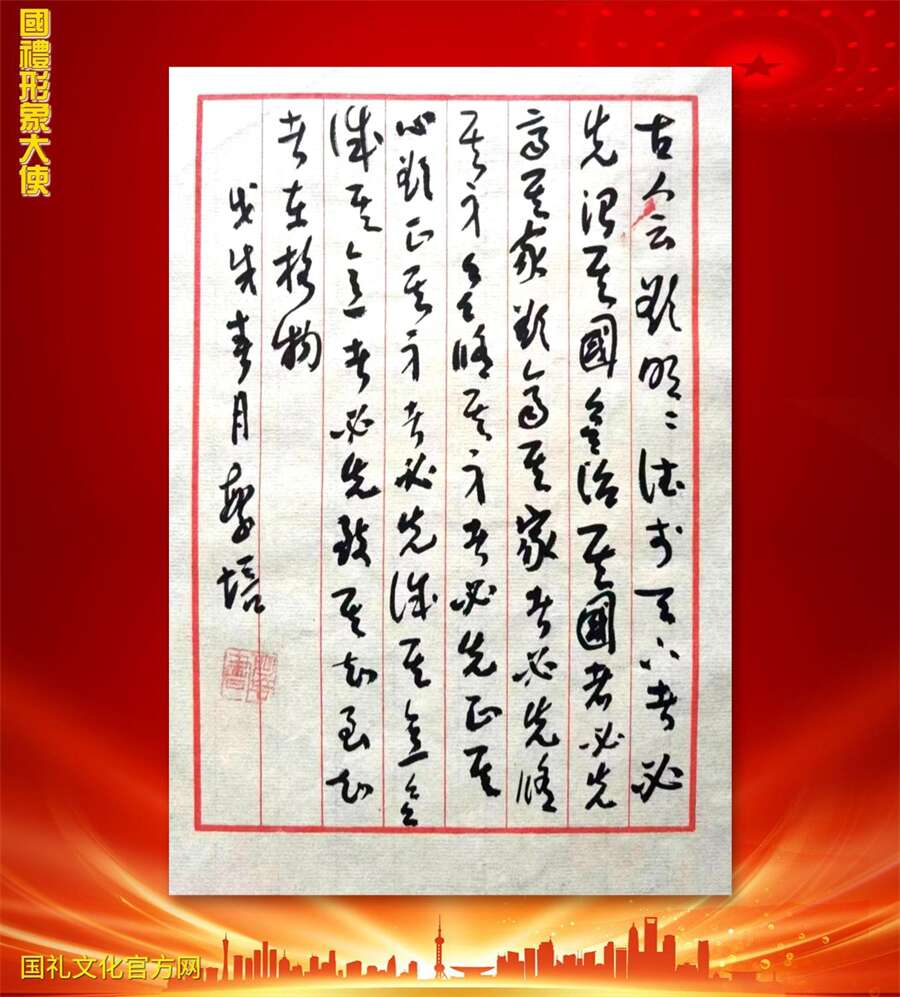 國禮形象大使
古人云欲明〻德於天下者必
先治其國欲治其國者必先
齊其家欲齊其家者必先脩
其身欲脩其身者必先正其
心欲正其身者必先誠其意欲
誠其意者必先致其知至知
者在格物
戊戌春月 培
国礼文化官方网